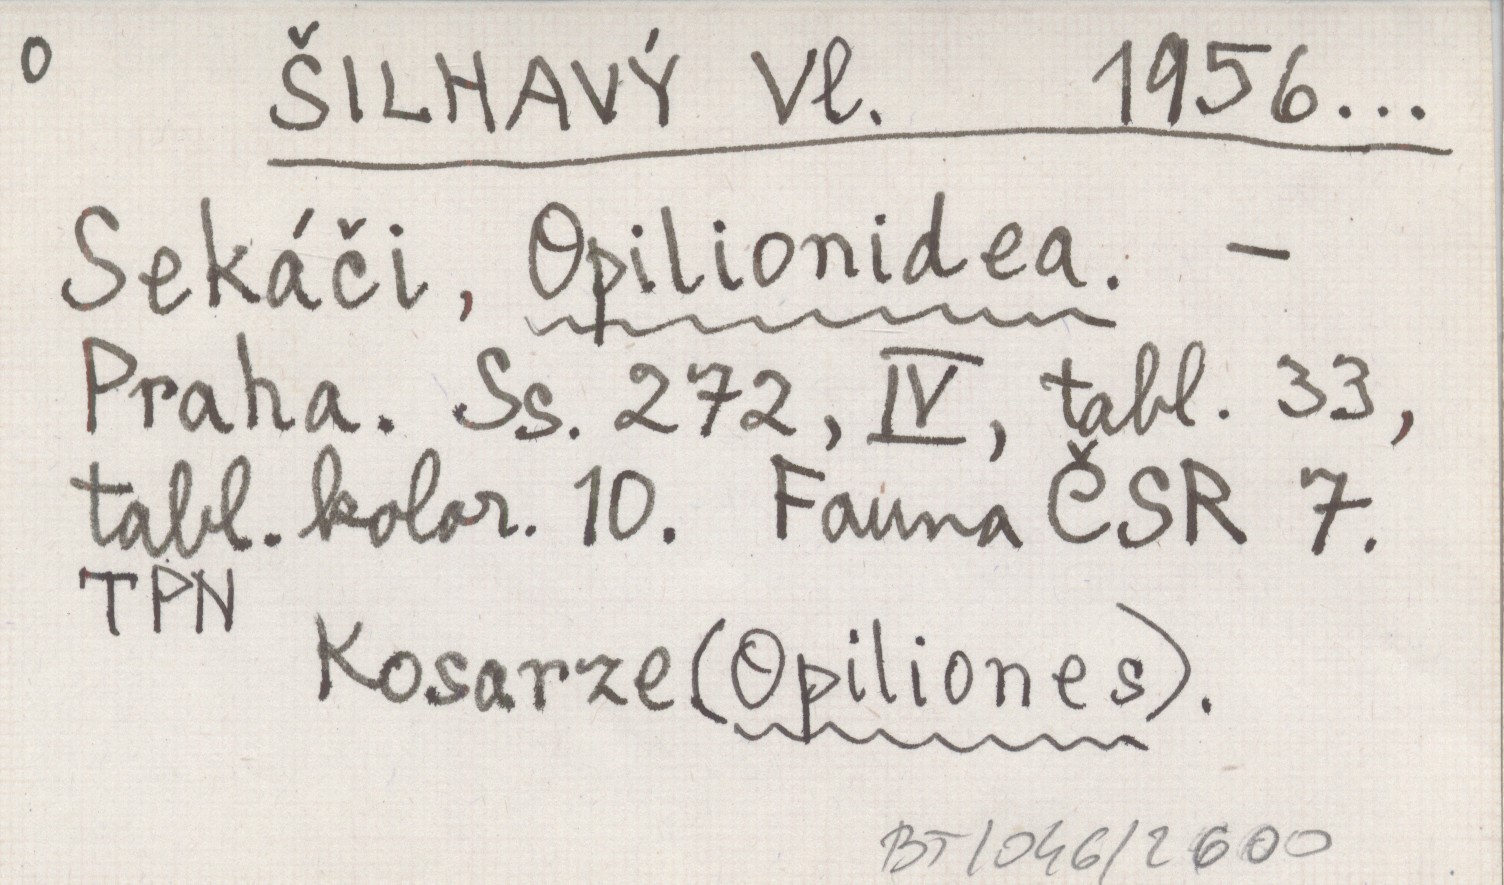 O ŠILHAVÝ Vl. 1956...
Sekáči, Opilionidea. –
Praha. Ss. 272, IV, tabl. 33,
tabl. kolor. 10. Fauna ČSR 7.
TPN
Kosarze (Opiliones).
BT/046/2600